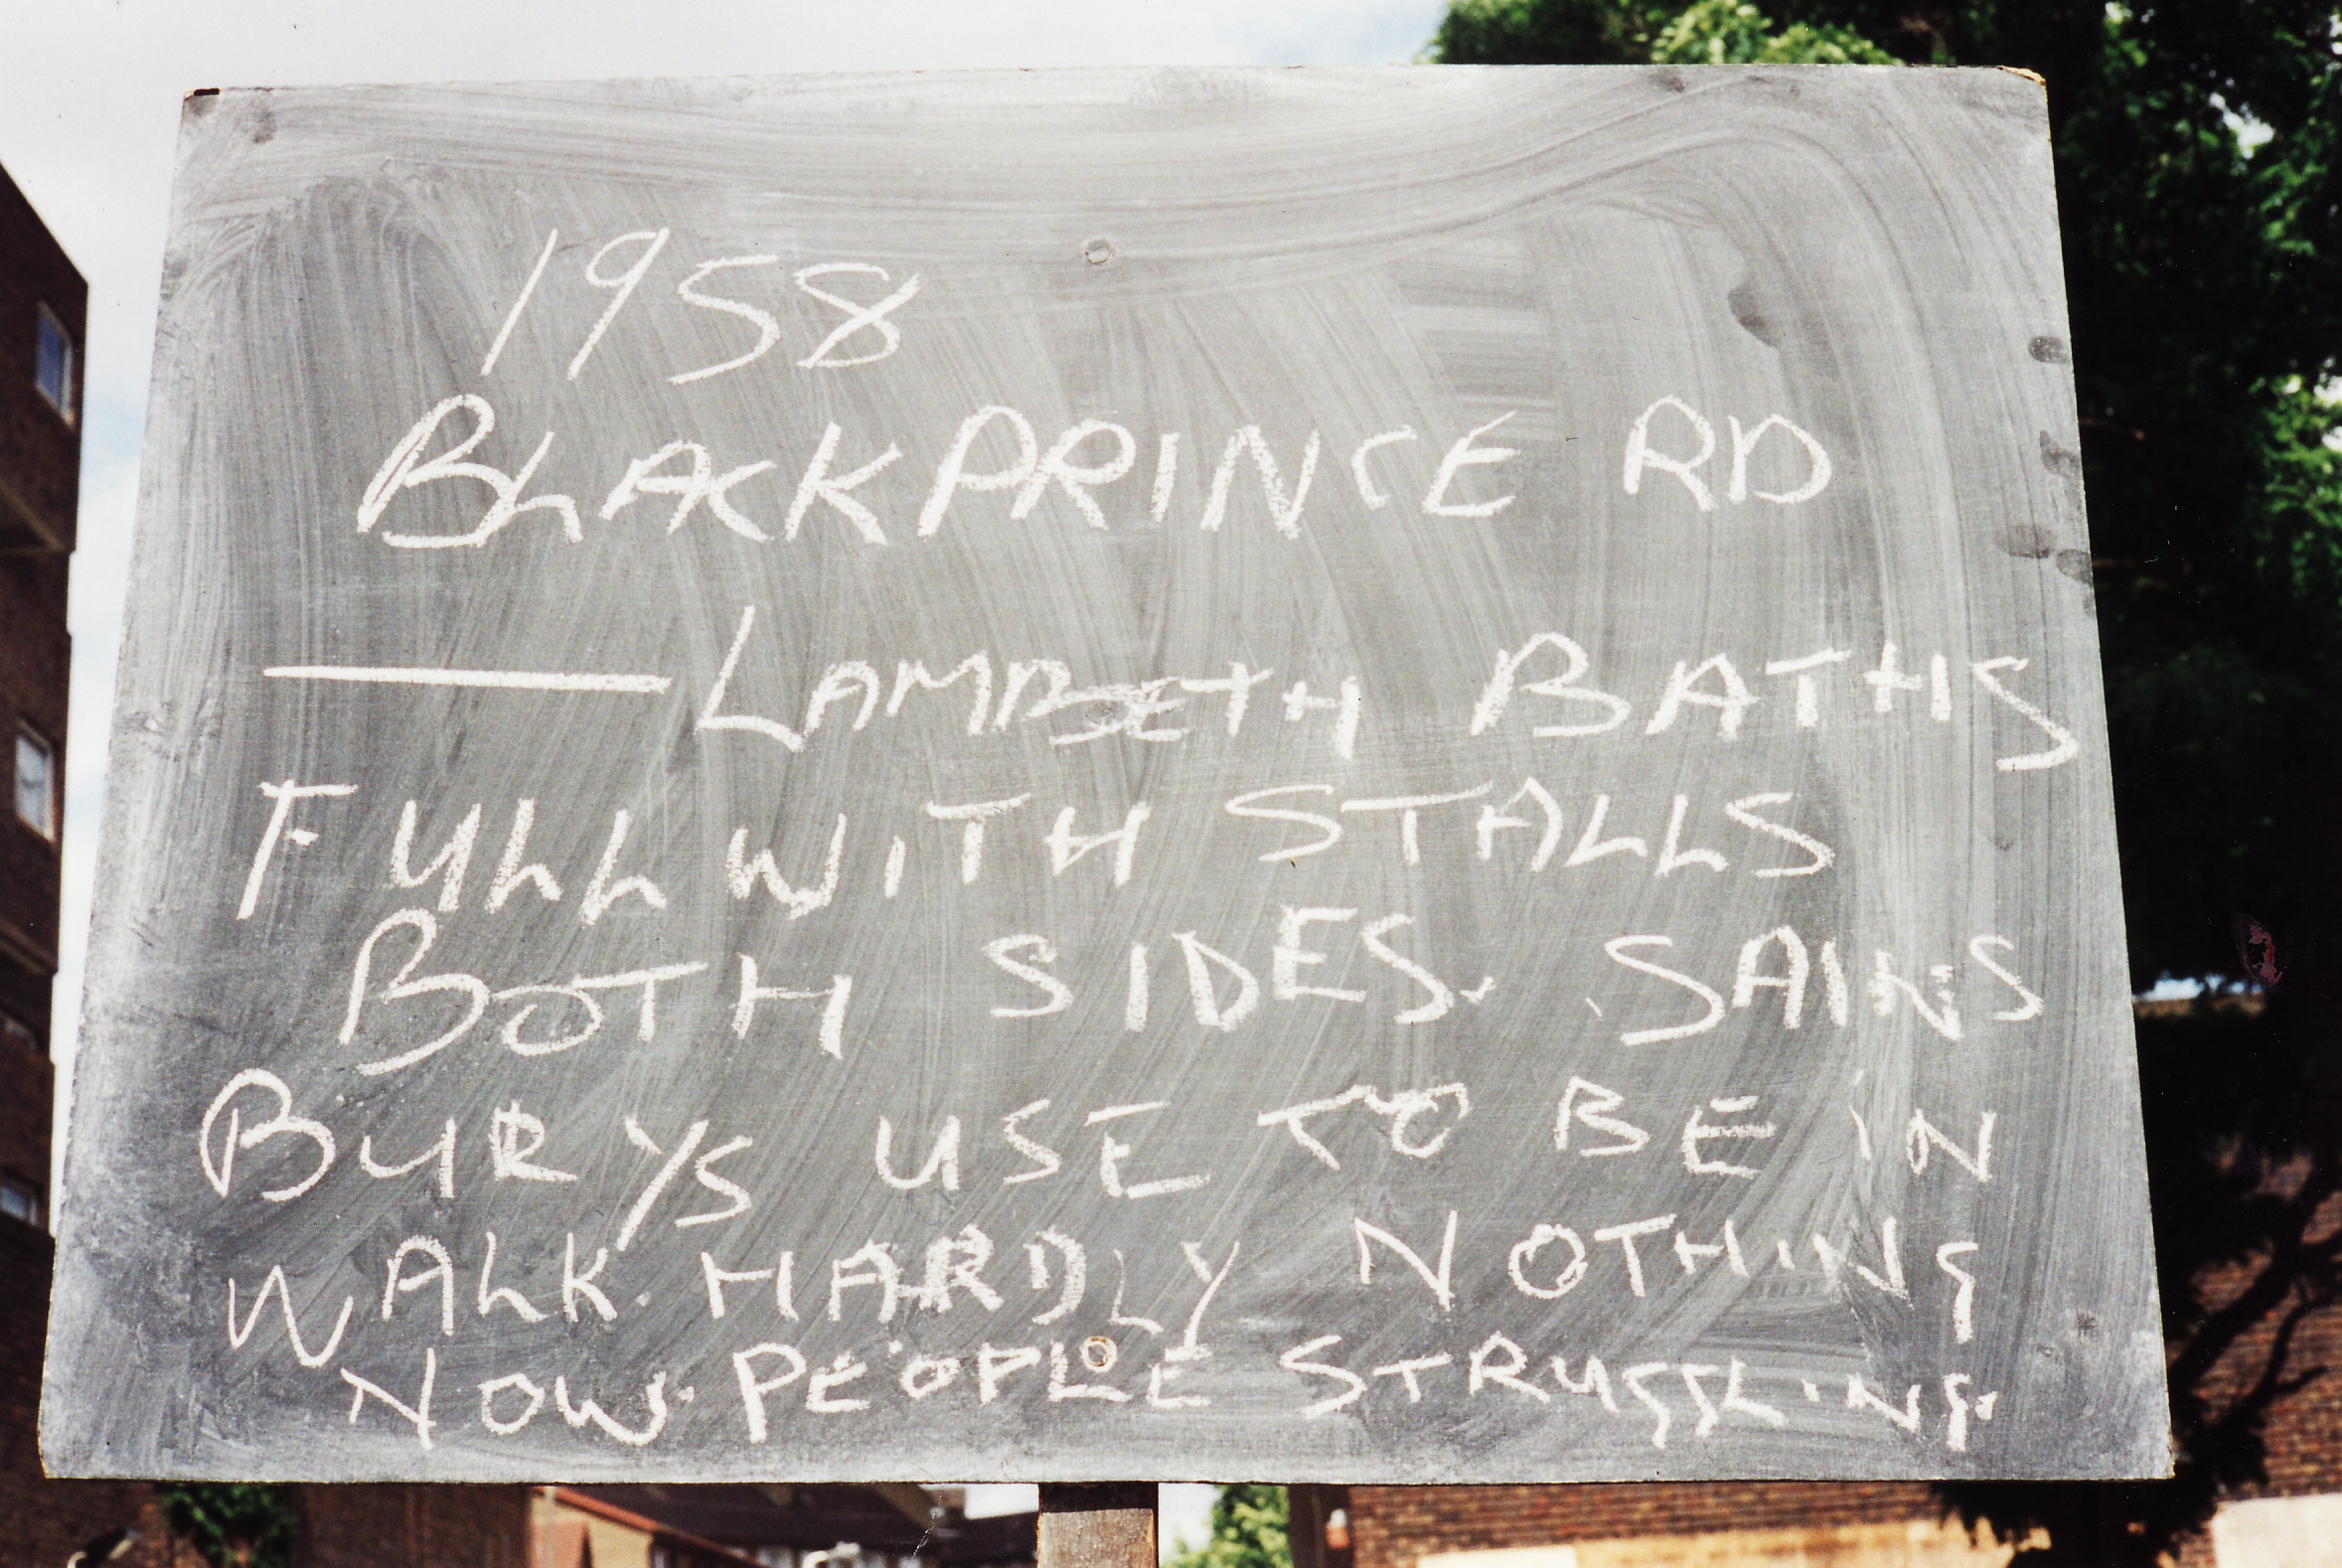 1958
BLACKPRINCE RD
— LAMBETH BATHS
FULL WITH STALLS
BOTH SIDES. SAINS
BURYS USE TO BE IN
WALK. HARDLY NOTHING
NOW. PEOPLE STRUGGLING